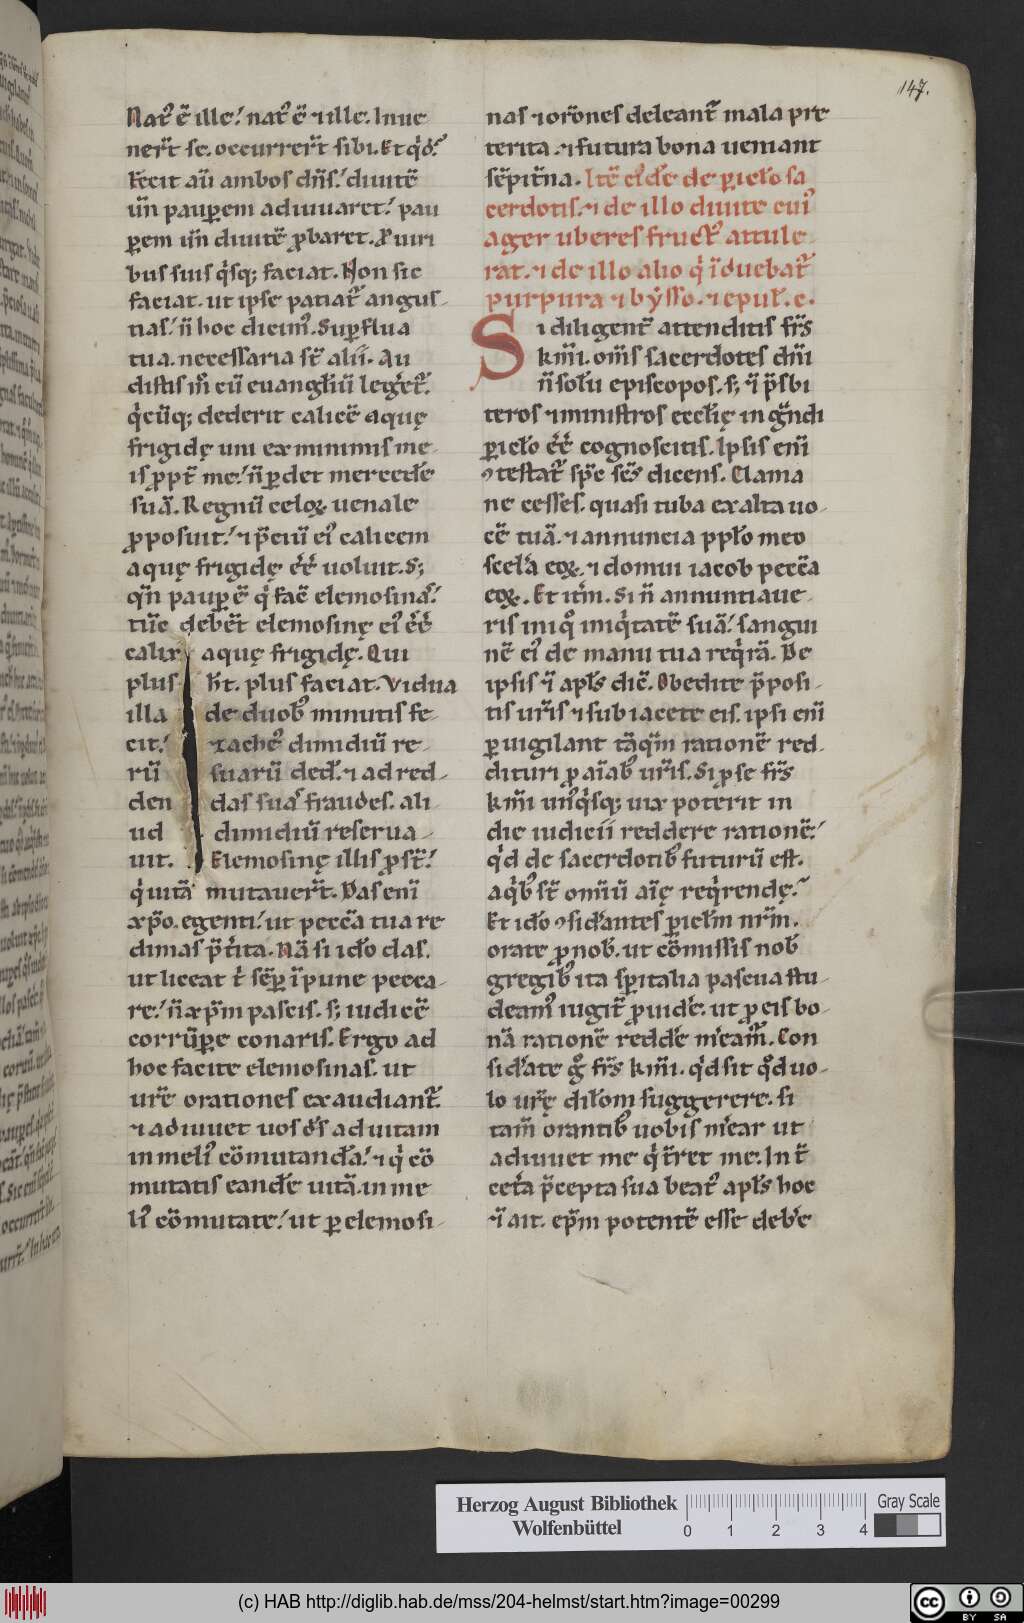 147.
Nat᷒ ē ille.' nat᷒ ē ⁊ ille. Inue
ner̄t se. occurrer̄t sibi. Et qd᷒.'
fecit aū ambos dn̄s.' diuitē
ūn pauꝑem adiuuaret.' pau
ꝑem ūn diuitē ꝓbaret. Ex uiri
bus suis qͥsq; faciat. Non sic
faciat. ut ipse patiat᷑ angus-
tias.' n̄ hoc dicim᷒. Suꝑflua
tua. necessaria st̄ alii. Au
distis m̄ cū euangliū leg̅et᷑.
qͥcūq; dederit calicē aquę
frigidę uni ex minimis me-
is ꝓpt̄ me.' n̄ ꝑdet mercedē
suā. Regnū celoꝝ uenale
ꝓposuit.' ⁊ p̄ciū ei᷒ calicem
aquę frigidę ēē uoluit. S;
qn̄ pauꝑ ē qͥ facͥ elemosinā.'
tūc debet elemosinę ei᷒ ēē
calix aquę frigidę. Qui
plus ht̄. plus faciat. Vidua
illa de duob᷒ minutis fe-
cit.' zache᷒ dimidiū re-
rū suarū ded̄. ⁊ ad red-
den das suas fraudes. ali
ud dimidiū reserua-
uit. Elemosinę illis ꝓst̄.'
qͥ uitā mutauer̄t. Das enī
xp̄o egenti.' ut peccā tua re
dimas p̄tͥita. Nā si ido das.
ut liceat tͥ sēꝑ īpune pecca-
re.' n̄ xp̄m pascis. s; iudicē
corrūꝑe conaris. Ergo ad
hoc facite elemosinas. ut
ur̄ę orationes exaudiant᷑.
⁊ adiuuet uos ds̄ ad uitam
in meli᷒ cōmutandā.' ⁊ qͥ cō
mutatis eandē uitā. in me
li᷒ cōmutate.' ut ꝑ elemosi-
nas ⁊ or̄ones deleant᷑ mala pre
terita. ⁊ futura bona ueniant
sēpit̄na. Itē ei᷒dē de ꝑicło sa
cerdotis. ⁊ de illo diuite cui᷒
ager uberes fruct᷒ attule-
rat. ⁊ de illo alio qͥ īduebat᷑
purpura ⁊ bysso. ⁊ epuł. c.
Si diligent̄ attenditis frs̄
km̄i. om̄s sacerdotes dn̄i
n̄ solū episcopos. s; ⁊ p̄sbi
teros ⁊ ministros eccłię in gͣndi
ꝑicło ēē cognoscitis. Ipsis enī
ꝯtestat᷑ sp̄c sc̄s dicens. Clama
ne cesses. quasi tuba exalta uo-
cē tuā. ⁊ annuncia ppło meo
scelͣa eoꝝ. ⁊ domui iacob peccā
eoꝝ. Et itm̄. Si n̄ annuntiaue-
ris iniqͦ iniqͥtatē suā.' sangui
nē ei᷒ de manu tua reqͥrā. De
ipsis ⁊ apłs dic̄. Obedite p̄posi-
tis ur̄is ⁊ subiacete eis. ipsi enī
ꝑuigilant tāqm̄ rationē red-
dituri ꝓ aīab᷒ ur̄is. Si ꝓ se frs̄
km̄i un᷒qͥsq; uix poterit in
die iudicii reddere rationē.'
qͥd de sacerdotib᷒ futurū est.
a qͥb᷒ st̄ omīū aīę reqͥrendę.'
Et ido ꝯsidͣantes ꝑicłm nr̄m.
orate ꝓ nob. ut cōmissis nob
gregib᷒ ita spͥitalia pascua stu-
deam᷒ iugit̄ ꝓuidē. ut ꝓ eis bo-
nā rationē reddē m̄eam᷑. Con
sidͣate gͦ frs̄ km̄i. qͥd sit qͦd uo-
lo ur̄ę diłom suggerere. si
tam̄ orantib᷒ uobis m̄ear ut
adiuuet me qͥ t̄ret me. Int̄
cetͣa p̄cepta sua beat᷒ apłs hoc
⁊ ait. ep̄m potentē esse debē
Herzog August Bibliothek
Wolfenbüttel
Gray Scale
0 1 2 3 4
(c) HAB http://diglib.hab.de/mss/204-helmst/start.htm?image=00299
cc BY SA